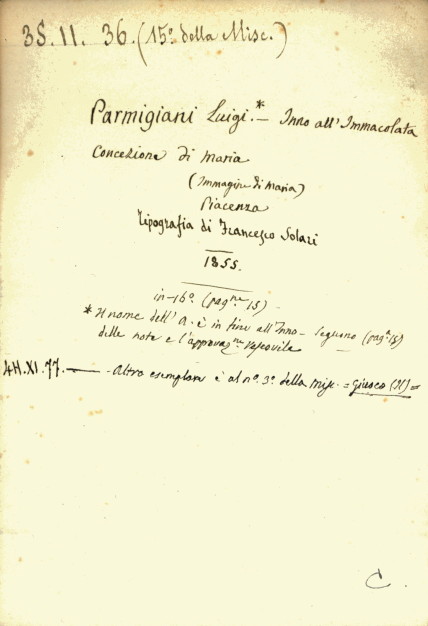 35.11. 36. (15º della Misc.)
Parmigiani Luigi.* — Inno all'Immacolata
Concezione di Maria
(Immagine di Maria)
Piacenza
Tipografia di Francesco Solari
1855.
in-16º (pagne 15) -
* Il nome dell'A. è in fine all'Inno - Seguono (pagª 15)
delle note e l'approvazne Vescovile
4H.XI.77. — - Altro esemplare è al nº. 3º. della Misc. = Giuoco (Il) =
C.